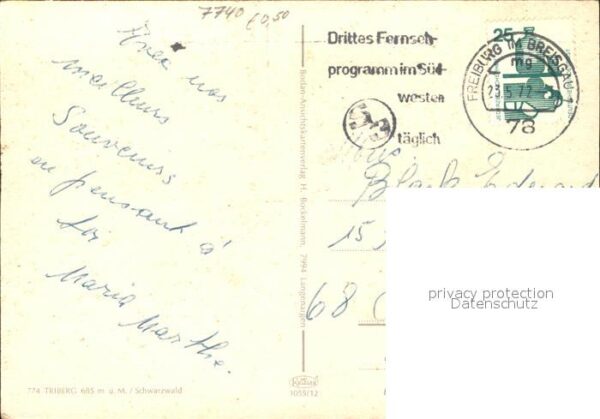 7740 €0,50
Avec nos
meilleurs
Souvenirs
en pensant à
toi
Maria Marthe.
774 TRIBERG 685 m ü. M. / Schwarzwald
Bodan-Ansichtskartenverlag H. Bockelmann, 7994 Langenargen
Krüger
1055/12
Drittes Fernseh-
programm im Süd-
westen
täglich
25
FREIBURG IM BREISGAU
mg
23.5.72
78
15
68
privacy protection
Datenschutz